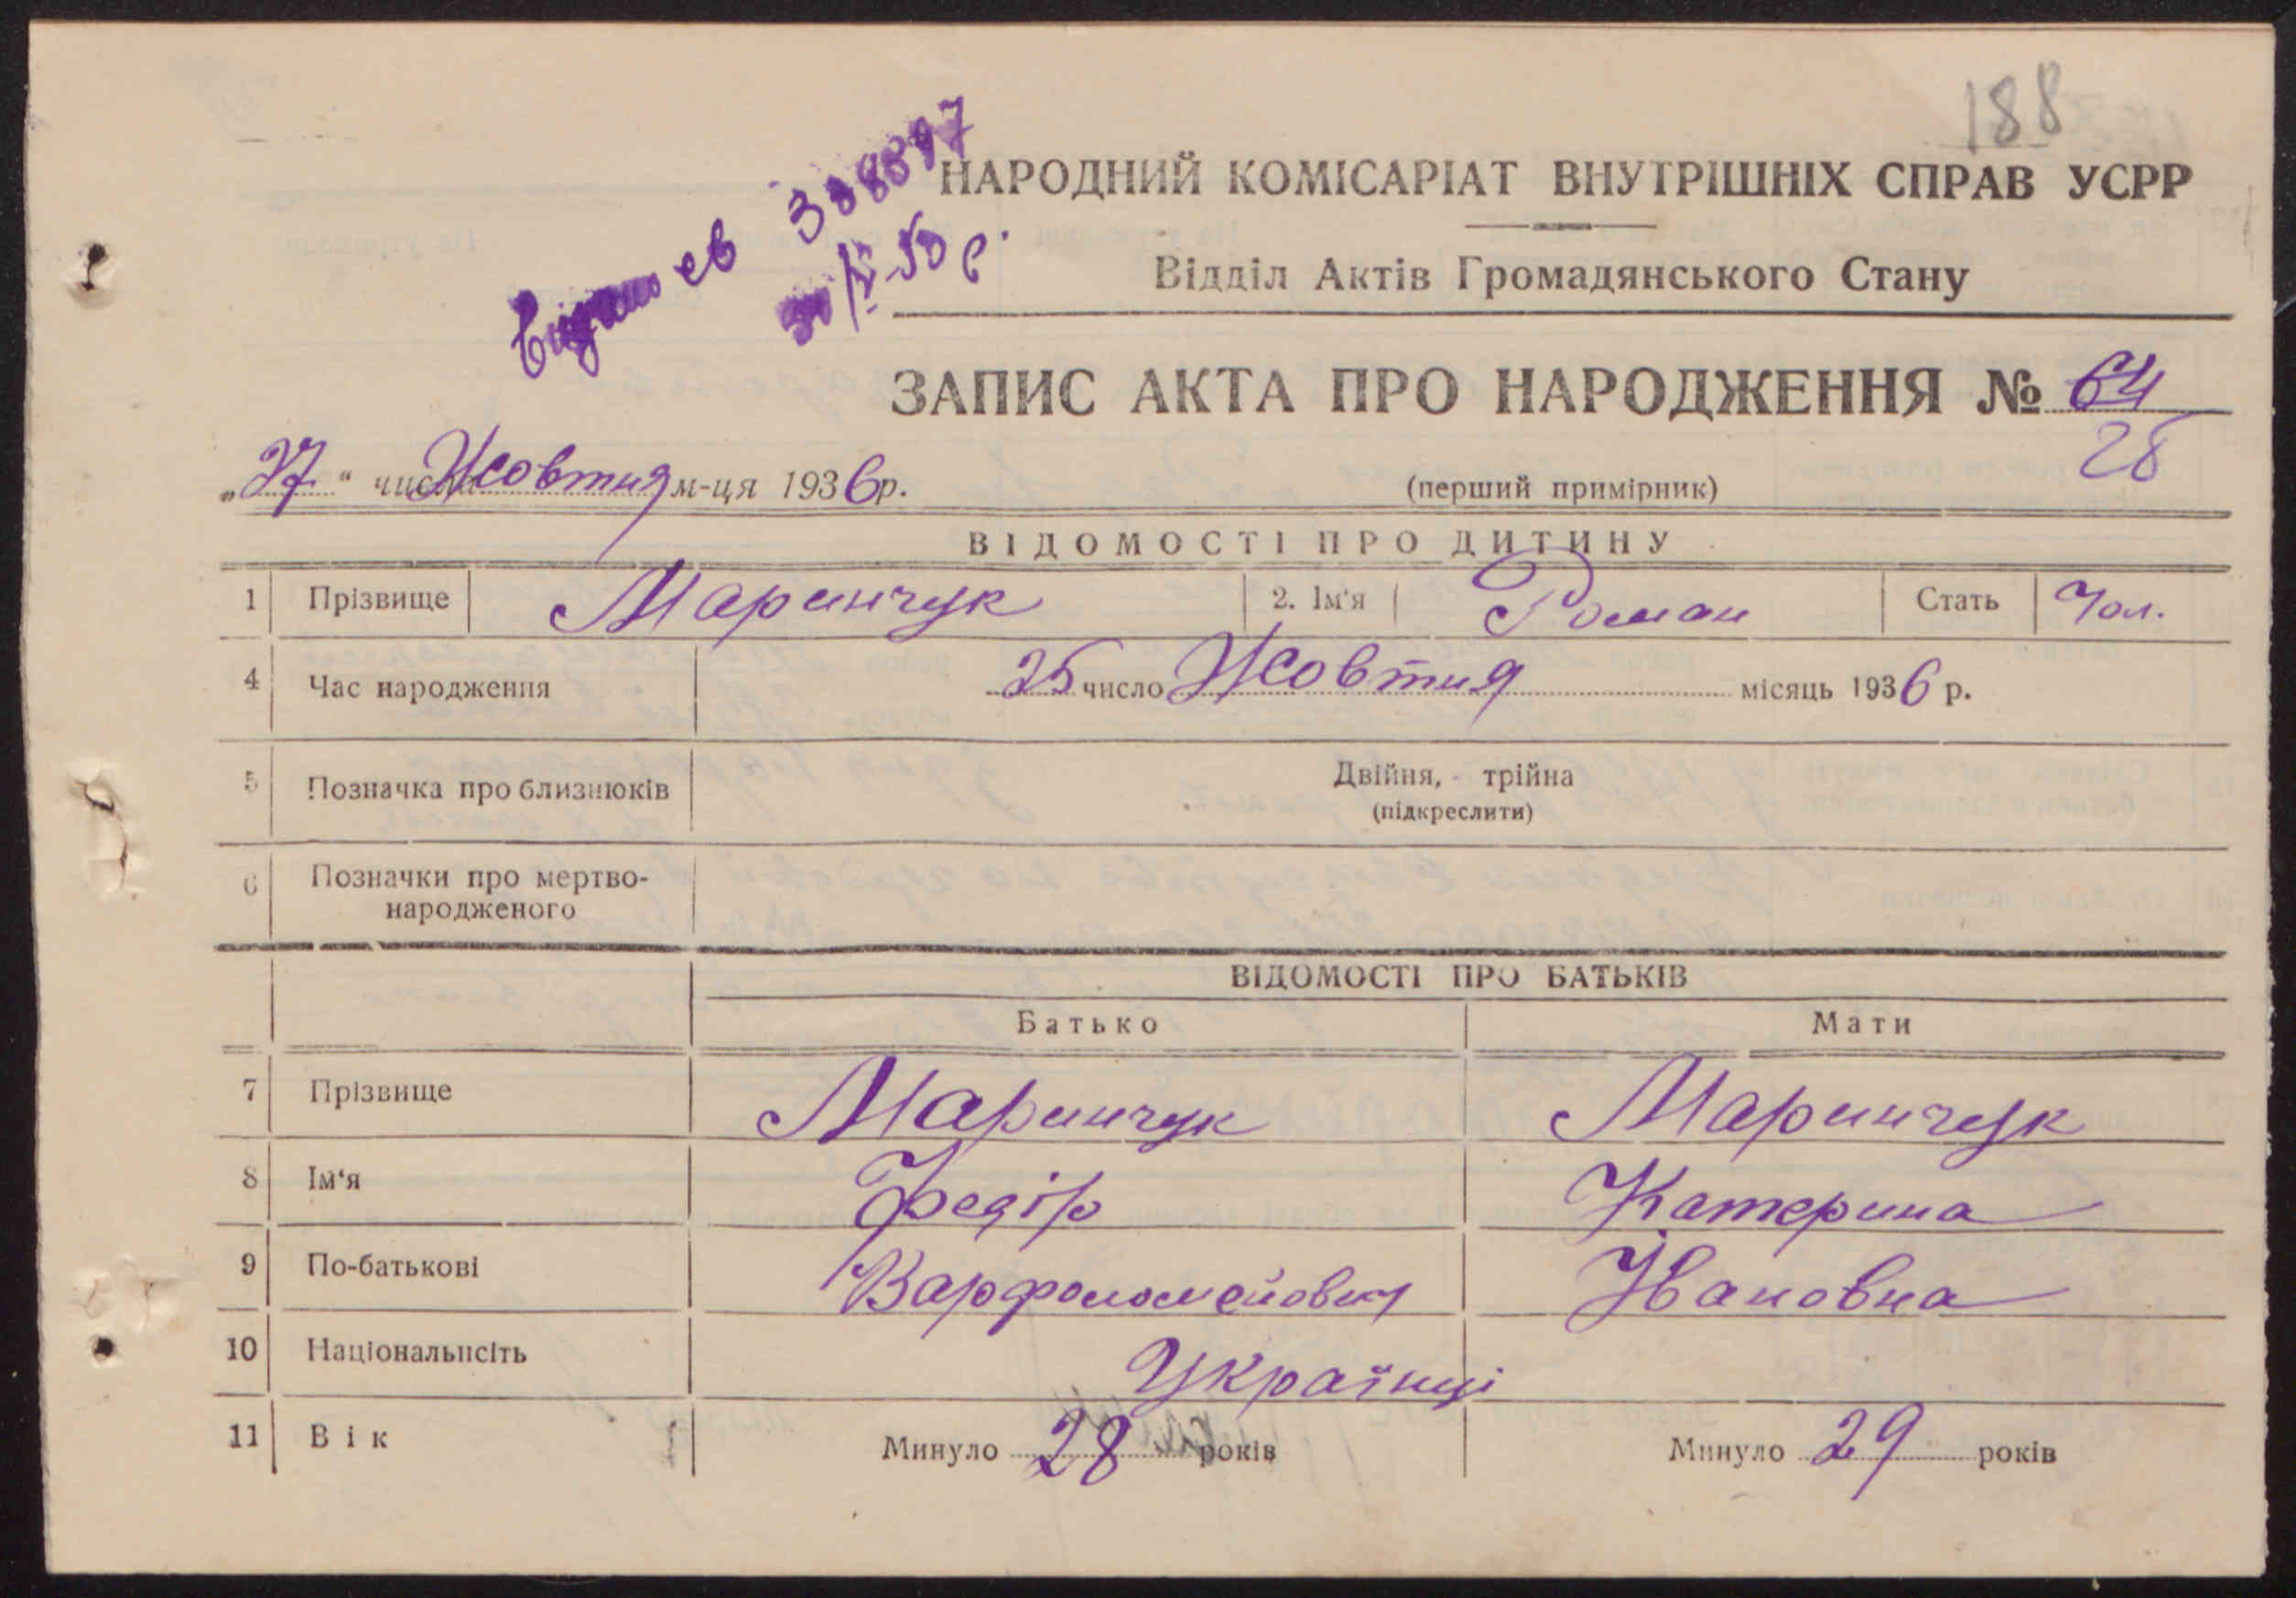 188
НАРОДНИЙ КОМІСАРІАТ ВНУТРІШНІХ СПРАВ УСРР
Відділ Актів Громадянського Стану
ЗАПИС АКТА ПРО НАРОДЖЕННЯ № 64
28
„27" числа Жовтня м-ця 1936 р.
(перший примірник)
ВІДОМОСТІ ПРО ДИТИНУ
1 Прізвище Маринчук 2. Ім'я Роман Стать Чол.
4 Час народження 25 число Жовтня місяць 1936 р.
5 Позначка про близнюків Двійня, - трійна
(підкреслити)
6 Позначки про мертво-
народженого
ВІДОМОСТІ ПРО БАТЬКІВ
Батько Мати
7 Прізвище Маринчук Маринчук
8 Ім'я Федір Катерина
9 По-батькові Варфоломейович Івановна
10 Національнсіть Українці
11 Вік Минуло 28 років Минуло 29 років